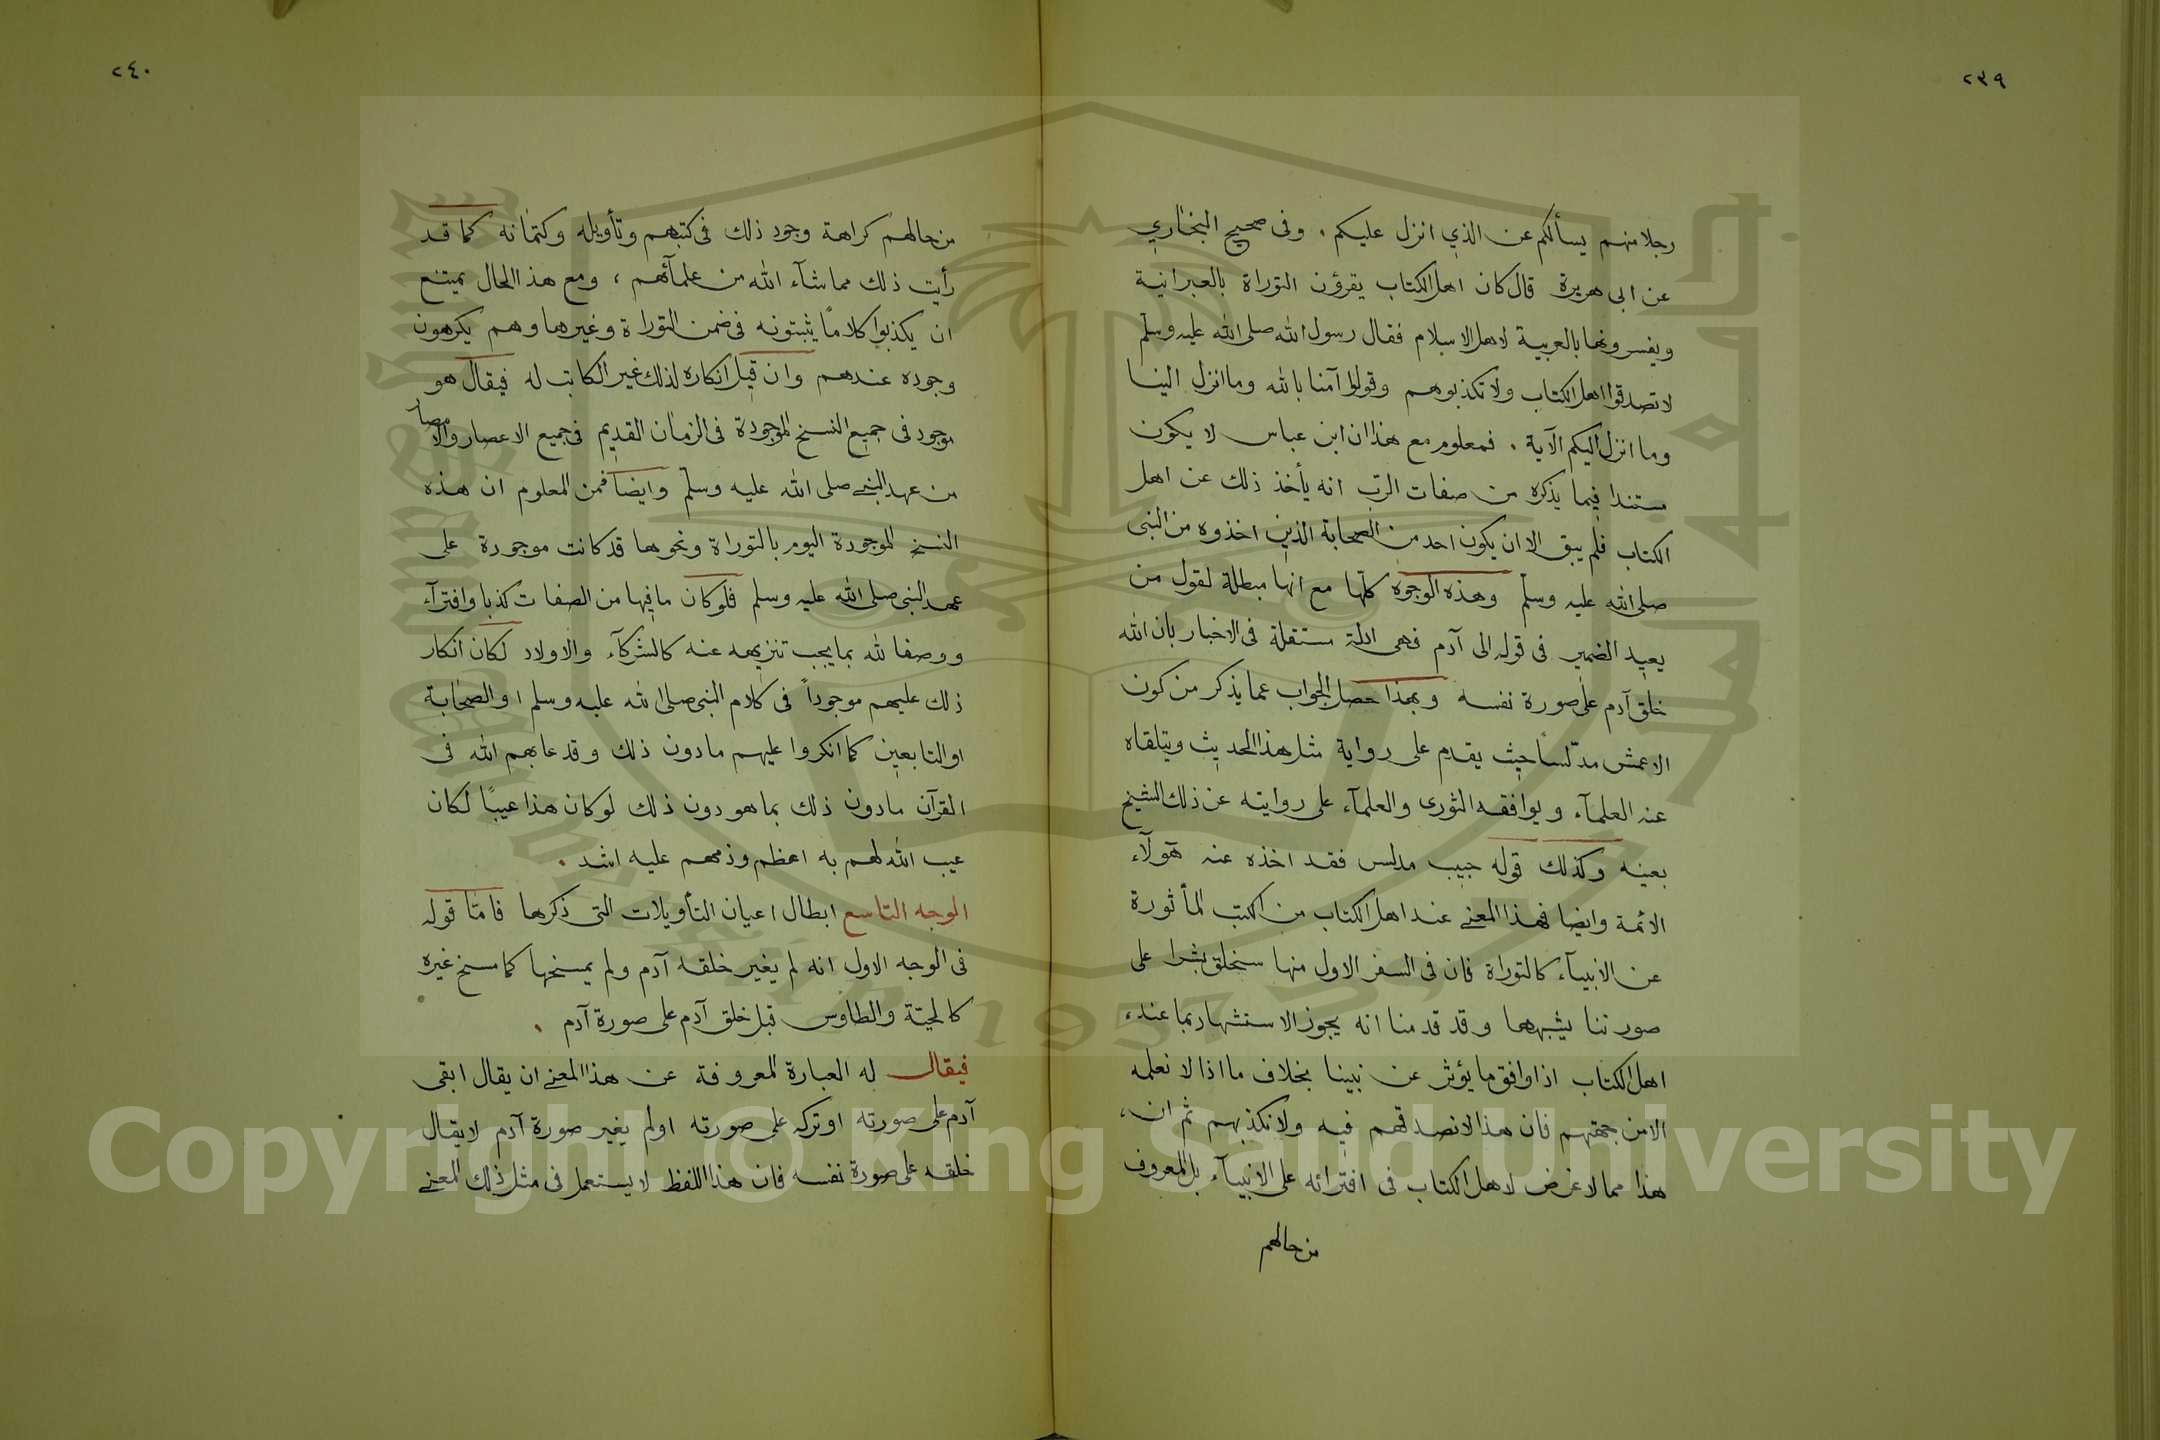 ٢٣٩
رجلا منهم يسألكم عن الذي انزل عليكم . وفى صحيح البخاري
عن ابى هريرة قال كان اهل الكتاب يقرؤن التوراة بالعبرانية
ويفسرونها بالعربية لاهل الاسلام فقال رسول الله صلى الله عليه وسلم
لا تصدقوا اهل الكتاب ولا تكذبوهم وقولوا آمنا بالله وما انزل الينا
وما انزل اليكم الآية . فمعلوم مع هذا ان ابن عباس لا يكون
مستندا فيما يذكره من صفات الرب انه يأخذ ذلك عن اهل
الكتاب فلم يبق الا ان يكون احد من الصحابة الذين اخذوه من النبى
صلى الله عليه وسلم وهذه الوجوه كلها مع انها مبطلة لقول من
يعيد الضمير فى قوله الى آدم فهى ادلة مستقلة فى الاخبار بان الله
خلق آدم على صورة نفسه وبهذا حصل الجواب عما يذكر من كون
الاعمش مدلسا حيث يقدم على رواية مثل هذا الحديث ويتلقاه
عنه العلمآء ويوافقه الثورى والعلمآء على روايته عن ذلك الشيخ
بعينه وكذلك قوله حبيب مدلس فقد اخذه عنه هؤلآء
الائمة وايضا فهذا المعنى عند اهل الكتاب من الكتب المأثورة
عن الانبيآء كالتوراة فان فى السفر الاول منها سنخلق بشرا على
صورتنا يشبهها وقد قدمنا انه يجوز الاستشهاد بما عند
اهل الكتاب اذا وافق ما يؤثر عن نبينا بخلاف ما اذا لا نعلمه
الا من جهتهم فان هذا لا نصدقهم فيه ولا نكذبهم ثم ان
هذا مما لا غرض لاهل الكتاب فى افترائه على الانبيآء بل المعروف
من حالهم
٢٤٠
من حالهم كراهة وجود ذلك فى كتبهم وتأويله وكتمانه كما قد
رأيت ذلك مما شآء الله من علمآئهم ، ومع هذا الحال يمتنع
ان يكذبوا كلاما يثبتونه فى ضمن التوراة وغيرها وهم يكرهون
وجوده عندهم وان قيل انكاره لذلك غير الكاتب له فيقال هو
موجود فى جميع النسخ الموجودة فى الزمان القديم فى جميع الاعصار والامصار
من عهد النبى صلى الله عليه وسلم وايضا فمن المعلوم ان هذه
النسخ الموجودة اليوم بالتوراة ونحوها قد كانت موجودة على
عهد النبى صلى الله عليه وسلم فلو كان ما فيها من الصفات كذبا وافترآء
ووصفا لله بما يجب تنزيهه عنه كالشركآء والاولاد لكان انكار
ذلك عليهم موجوداً فى كلام النبى صلى الله عليه وسلم او الصحابة
او التابعين كما انكروا عليهم ما دون ذلك وقد عابهم الله فى
القرآن ما دون ذلك بما هو دون ذلك لو كان هذا عيبًا لكان
عيب الله لهم به اعظم وذمهم عليه اشد .
الوجه التاسع ابطال اعيان التأويلات التى ذكرها فامّا قوله
فى الوجه الاول انه لم يغير خلقه آدم ولم يمسخها كما مسخ غيره
كالحيّة والطاوس قبل خلق آدم على صورة آدم .
فيقال له العبارة المعروفة عن هذا المعنى ان يقال ابقى
آدم على صورته او تركه على صورته او لم يغير صورة آدم لا يقال
خلقه على صورة نفسه فان هذا اللفظ لا يستعمل فى مثل ذلك المعنى
Copyright © King Saud University
1957